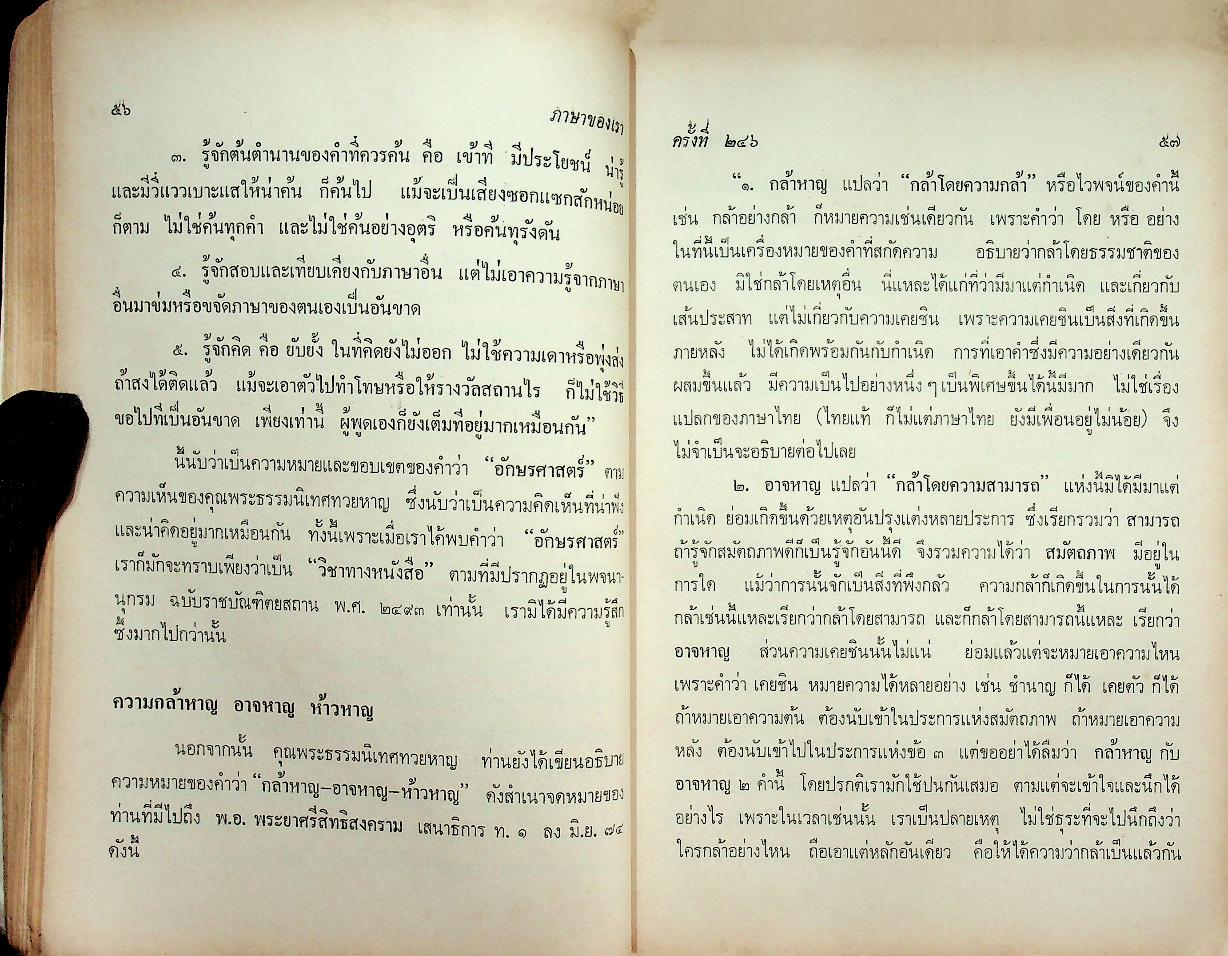 ๕๖
ภาษาของเรา
๓. รู้จักต้นตำนานของคำที่ควรค้น คือ เข้าที มีประโยชน์ น่ารู้
และมีวี่แววเบาะแสให้น่าค้น ก็ค้นไป แม้จะเป็นเสียงซอกแซกสักหน่อย
ก็ตาม ไม่ใช่ค้นทุกคำ และไม่ใช่ค้นอย่างอุตริ หรือค้นทุรังดัน
๔. รู้จักสอบและเทียบเคียงกับภาษาอื่น แต่ไม่เอาความรู้จากภาษา
อื่นมาข่มหรือขจัดภาษาของตนเองเป็นอันขาด
๕. รู้จักคิด คือ ยับยั้ง ในที่คิดยังไม่ออก ไม่ใช้ความเดาหรือพุ่งส่ง
ถ้าสงได้ติดแล้ว แม้จะเอาตัวไปทำโทษหรือให้รางวัลสถานไร ก็ไม่ใช้วิธี
ขอไปทีเป็นอันขาด เพียงเท่านี้ ผู้พูดเองก็ยังเต็มทีอยู่มากเหมือนกัน”
นี้นับว่าเป็นความหมายและขอบเขตของคำว่า “อักษรศาสตร์” ตาม
ความเห็นของคุณพระธรรมนิเทศทวยหาญ ซึ่งนับว่าเป็นความคิดเห็นที่น่าฟัง
และน่าคิดอยู่มากเหมือนกัน ทั้งนี้เพราะเมื่อเราได้พบคำว่า “อักษรศาสตร์”
เราก็มักจะทราบเพียงว่าเป็น “วิชาทางหนังสือ” ตามที่มีปรากฏอยู่ในพจนา-
นุกรม ฉบับราชบัณฑิตยสถาน พ.ศ. ๒๔๙๓ เท่านั้น เรามิได้มีความรู้สึก
ซึ้งมากไปกว่านั้น
ความกล้าหาญ อาจหาญ ห้าวหาญ
นอกจากนั้น คุณพระธรรมนิเทศทวยหาญ ท่านยังได้เขียนอธิบาย
ความหมายของคำว่า “กล้าหาญ–อาจหาญ–ห้าวหาญ” ดังสำเนาจดหมายของ
ท่านที่มีไปถึง พ.อ. พระยาศรีสิทธิสงคราม เสนาธิการ ท. ๑ ลง มิ.ย. ๗๔
ดังนี้
ครั้งที่ ๒๔๖
๕๗
“๑. กล้าหาญ แปลว่า “กล้าโดยความกล้า” หรือไวพจน์ของคำนี้
เช่น กล้าอย่างกล้า ก็หมายความเช่นเดียวกัน เพราะคำว่า โดย หรือ อย่าง
ในที่นี้เป็นเครื่องหมายของคำที่สกัดความ อธิบายว่ากล้าโดยธรรมชาติของ
ตนเอง มิใช่กล้าโดยเหตุอื่น นี่แหละได้แก่ที่ว่ามีมาแต่กำเนิด และเกี่ยวกับ
เส้นประสาท แต่ไม่เกี่ยวกับความเคยชิน เพราะความเคยชินเป็นสิ่งที่เกิดขึ้น
ภายหลัง ไม่ได้เกิดพร้อมกันกับกำเนิด การที่เอาคำซึ่งมีความอย่างเดียวกัน
ผสมขึ้นแล้ว มีความเป็นไปอย่างหนึ่ง ๆ เป็นพิเศษขึ้นได้นี้มีมาก ไม่ใช่เรื่อง
แปลกของภาษาไทย (ไทยแท้ ก็ไม่แต่ภาษาไทย ยังมีเพื่อนอยู่ไม่น้อย) จึง
ไม่จำเป็นจะอธิบายต่อไปเลย
๒. อาจหาญ แปลว่า “กล้าโดยความสามารถ” แห่งนี้มิได้มีมาแต่
กำเนิด ย่อมเกิดขึ้นด้วยเหตุอันปรุงแต่งหลายประการ ซึ่งเรียกรวมว่า สามารถ
ถ้ารู้จักสมัตถภาพดีก็เป็นรู้จักอันนี้ดี จึงรวมความได้ว่า สมัตถภาพ มีอยู่ใน
การใด แม้ว่าการนั้นจักเป็นสิ่งที่พึงกลัว ความกล้าก็เกิดขึ้นในการนั้นได้
กล้าเช่นนี้แหละเรียกว่ากล้าโดยสามารถ และก็กล้าโดยสามารถนี้แหละ เรียกว่า
อาจหาญ ส่วนความเคยชินนั้นไม่แน่ ย่อมแล้วแต่จะหมายเอาความไหน
เพราะคำว่า เคยชิน หมายความได้หลายอย่าง เช่น ชำนาญ ก็ได้ เคยตัว ก็ได้
ถ้าหมายเอาความต้น ต้องนับเข้าในประการแห่งสมัตถภาพ ถ้าหมายเอาความ
หลัง ต้องนับเข้าไปในประการแห่งข้อ ๓ แต่ขออย่าได้ลืมว่า กล้าหาญ กับ
อาจหาญ ๒ คำนี้ โดยปรกติเรามักใช้ปนกันเสมอ ตามแต่จะเข้าใจและนึกได้
อย่างไร เพราะในเวลาเช่นนั้น เราเป็นปลายเหตุ ไม่ใช่ธุระที่จะไปนึกถึงว่า
ใครกล้าอย่างไหน ถือเอาแต่หลักอันเดียว คือให้ได้ความว่ากล้าเป็นแล้วกัน